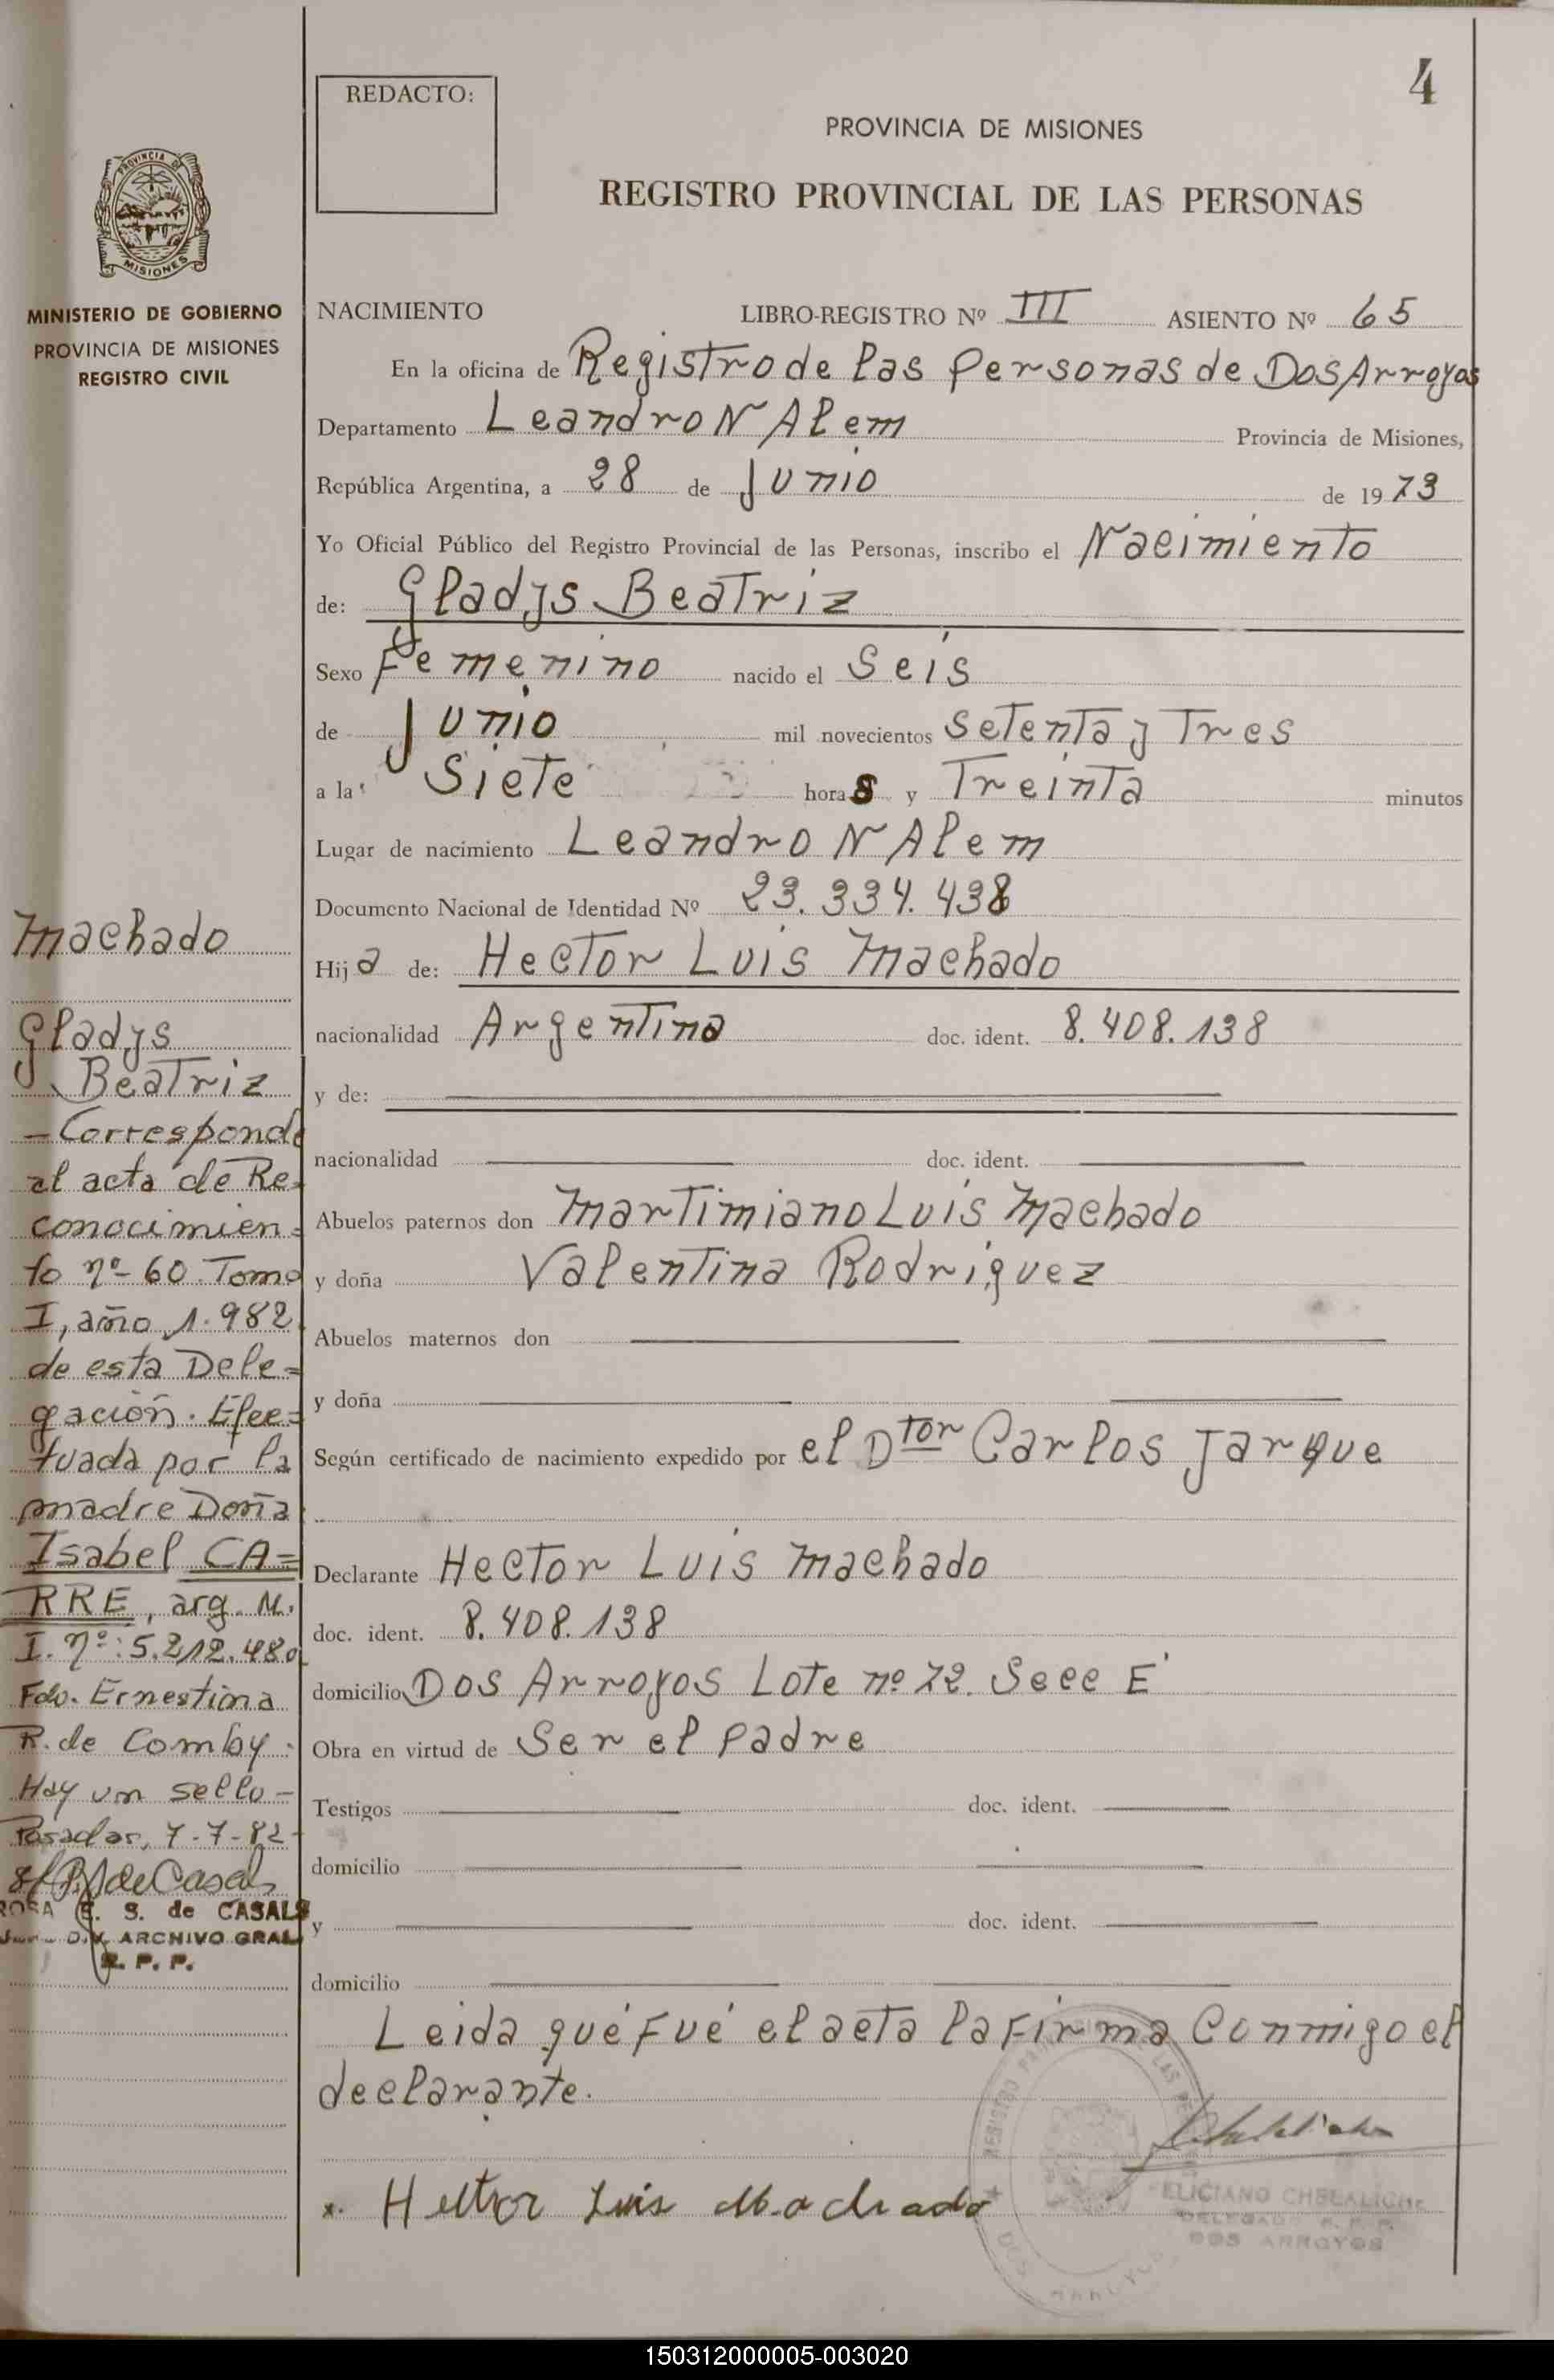 4
REDACTO:
PROVINCIA DE MISIONES
REGISTRO PROVINCIAL DE LAS PERSONAS
PROVINCIA DE
MISIONES
MINISTERIO DE GOBIERNO
PROVINCIA DE MISIONES
REGISTRO CIVIL
NACIMIENTO LIBRO-REGISTRO Nº III ASIENTO Nº 65
En la oficina de Registro de las Personas de Dos Arroyos
Departamento Leandro N Alem Provincia de Misiones,
República Argentina, a 28 de Junio de 1973
Yo Oficial Público del Registro Provincial de las Personas, inscribo el Nacimiento
de: Gladys Beatriz
Sexo Femenino nacido el Seis
de Junio mil novecientos Setenta y Tres
a las Siete horas y Treinta minutos
Lugar de nacimiento Leandro N Alem
Documento Nacional de Identidad Nº 23.334.438
Hija de: Hector Luis Machado
nacionalidad Argentina doc. ident. 8.408.138
y de:
nacionalidad doc. ident.
Abuelos paternos don Martimiano Luis Machado
y doña Valentina Rodriguez
Abuelos maternos don
y doña
Según certificado de nacimiento expedido por el Dtor Carlos Jarque
Declarante Hector Luis Machado
doc. ident. 8.408.138
domicilio Dos Arroyos Lote nº 72. Secc E
Obra en virtud de Ser el Padre
Testigos doc. ident.
domicilio
y doc. ident.
domicilio
Leida qué Fué el acta la Firma Conmigo el
declarante.
x. Hector Luis Machado
FELICIANO CHELALICHE
DELEGADO R. P. P.
DOS ARROYOS
Machado
Gladys
Beatriz
-Corresponde
al acta de Re-
conocimien=
to nº 60. Tomo
I, año 1.982
de esta Dele=
gación. Efec=
tuada por la
madre Doña
Isabel CA=
RRE, arg. M.
I. nº: 5.212.480
Fdo. Ernestina
R. de Comby.
Hay un sello-
Posadas, 7-7-82-
ROSA E. S. de CASALS
Div. ARCHIVO GRAL
R. P. P.
150312000005-003020